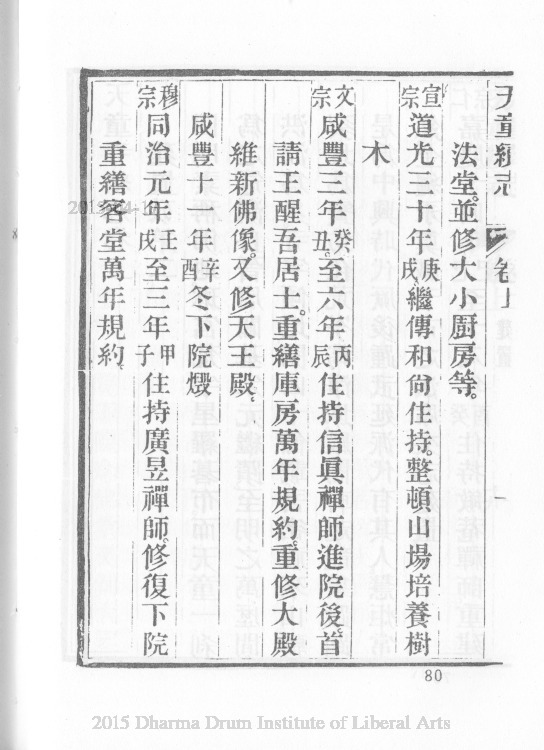 天童續志 卷上 一
法堂。並修大小廚房等。
宣宗道光三十年庚戌、繼傳和尙住持。整頓山場培養樹
木
文宗咸豐三年癸丑。至六年丙辰住持信眞禪師進院後。首
請王醒吾居士。重繕庫房萬年規約。重修大殿
維新佛像。又修天王殿。
咸豐十年辛酉冬下院燬
穆宗同治元年壬戌至三年甲子住持廣昱禪師。修復下院
重繕客堂萬年規約。
80
2015 Dharma Drum Institute of Liberal Arts